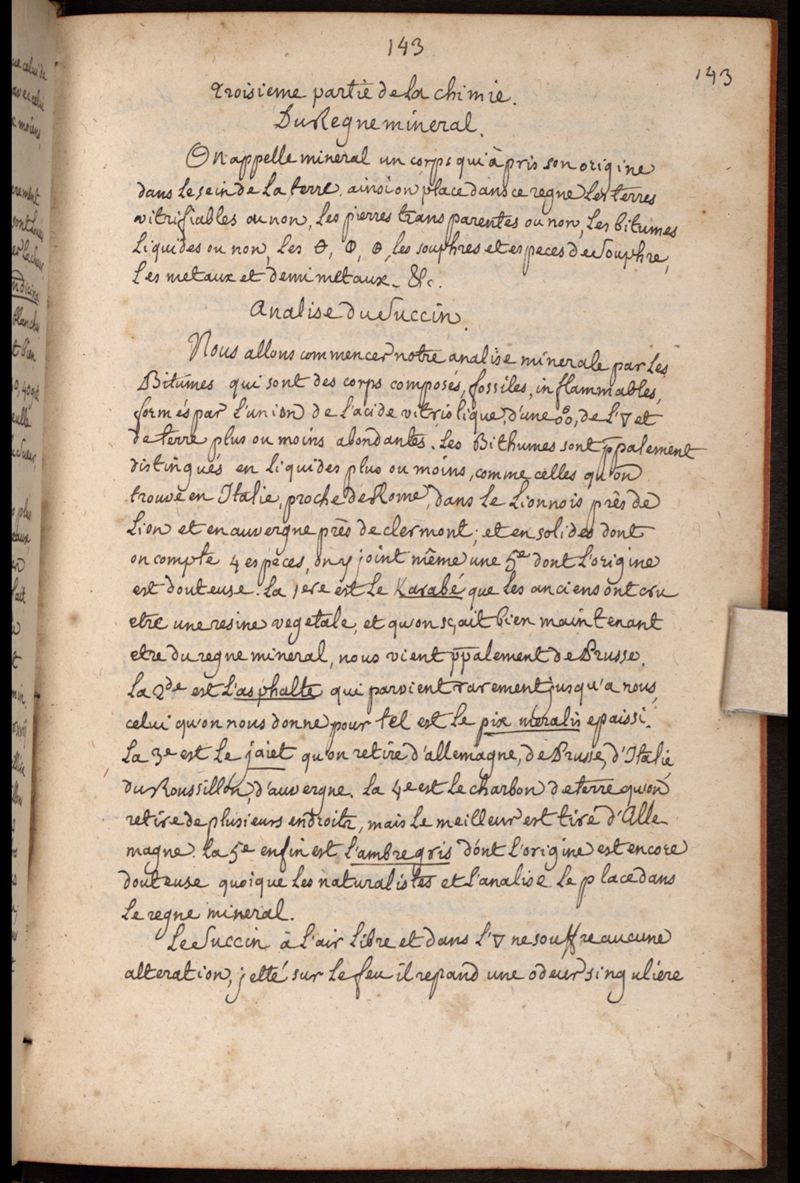 143
143
troisieme partie de la chimie.
Du Regne mineral.
On appelle mineral un corps qui à pris son origine
dans le sein de la terre. ainsi on place dans ce regne les terres
vitrifiables ou non, les pierres transparentes ou non, les bitumes
liquides ou non, les 🜔, 🜕, ⊕, les souphres et especes de souphre,
les metaux et demi metaux. &c.
Analise du Succin.
Nous allons commencer notre analise minerale par les
Bitumes qui sont des corps composés, fossiles, inflammables,
formés par l'union de l'acide vitriolique, d'une, de l'▽ et
de terre plus ou moins abondantes. les Bithumes sont p̄palement
distingués en liquides plus ou moins, comme celles qu'on
trouve en Italie, proche de Rome, dans le Lionnois près de
Lion et en auvergne près de clermont; et en solides dont
on compte 4 especes, on y joint même une 5e dont l'origine
est douteuse. la 1ere est le Karabé que les anciens ont cru
etre une resine vegetale, et qu'on sçait bien maintenant
etre du regne mineral, nous vient p̄palement de Prusse.
la 2de est l'asphalte qui parvient rarement jusqu'a nous,
celui qu'on nous donne pour tel est le pix moralis epaissi.
la 3e est le jaiet qu'on retire d'allemagne, de Prusse, d'Italie
du Roussillon, d'auvergne. la 4e est le charbon de terre qu'on
retire de plusieurs endroits, mais le meilleur est tiré d'Alle
magne. la 5e enfin est l'ambre gris dont l'origine est encore
douteuse quoique les naturalistes et l'analise le place dans
le regne mineral.
Le Succin à l'air libre et dans l'▽ ne souffre aucune
alteration, jetté sur le feu il repand une odeur singuliere